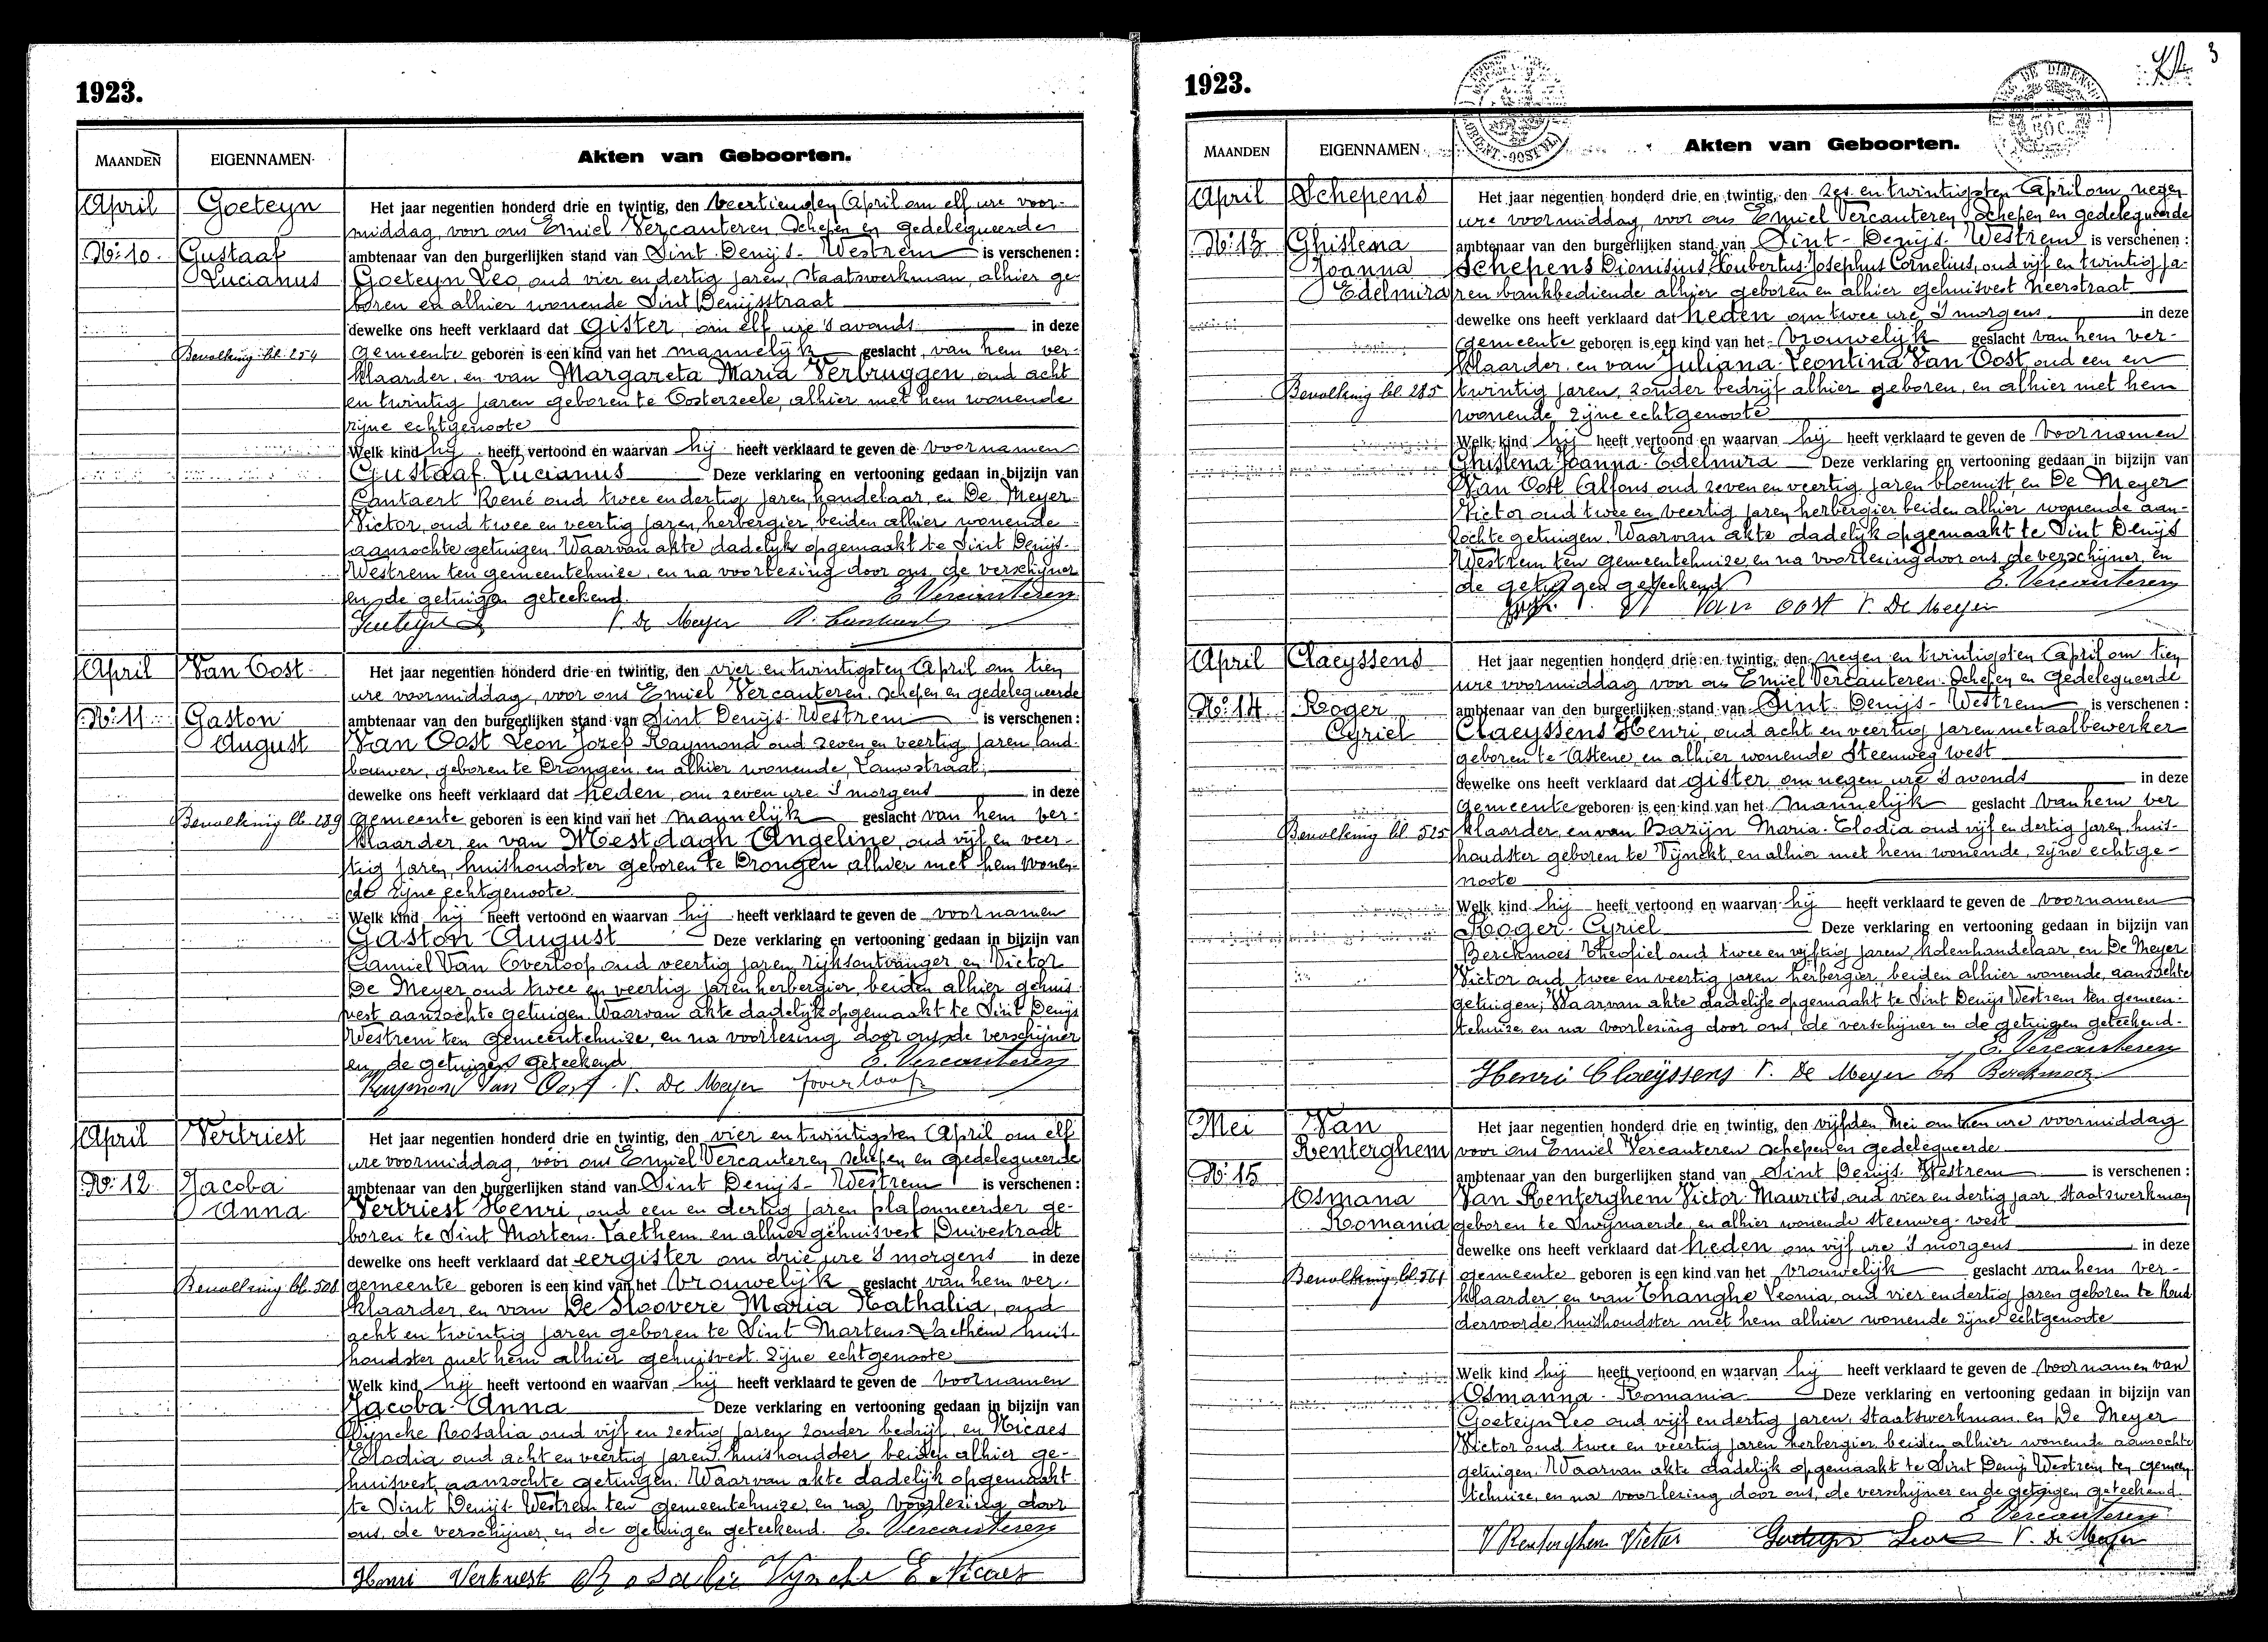 1923.
MAANDEN EIGENNAMEN Akten van Geboorten.
April Goeteyn Het jaar negentien honderd drie en twintig, den veertienden April om elf ure voor-
middag, voor ons Emiel Vercauteren Schepen en gedelegueerde
No: 10. Gustaaf ambtenaar van den burgerlijken stand van Sint Denijs-Westrem is verschenen:
Lucianus Goeteyn Leo, oud vier en dertig jaren, Staatswerkman, alhier ge-
boren en alhier wonende Sint Denijsstraat
dewelke ons heeft verklaard dat gister, om elf ure 's avonds in deze
Bevolking bl. 254 gemeente geboren is een kind van het mannelijk geslacht, van hem ver-
klaarder, en van Margareta Maria Verbruggen, oud acht
en twintig jaren geboren te Oosterzeele, alhier met hem wonende
zijne echtgenoote
Welk kind hij heeft vertoond en waarvan hij heeft verklaard te geven de voornamen
Gustaaf Lucianus Deze verklaring en vertooning gedaan in bijzijn van
Cantaert René oud twee en dertig jaren, handelaar, en De Meyer
Victor, oud twee en veertig jaren, herbergier, beiden alhier wonende
aanzochte getuigen. Waarvan akte dadelijk opgemaakt te Sint Denijs-
Westrem ten gemeentehuize, en na voorlezing door ons, de verschijner
en de getuigen geteekend. E. Vercauteren
Goeteyn L V. De Meyer R. Cantaert
April Van Oost Het jaar negentien honderd drie en twintig, den vier en twintigsten April om tien
ure voormiddag, voor ons Emiel Vercauteren. Schepen en gedelegueerde
No: 11 Gaston ambtenaar van den burgerlijken stand van Sint Denijs-Westrem is verschenen:
August Van Oost Leon Jozef Raymond oud zeven en veertig jaren land-
bouwer, geboren te Drongen, en alhier wonende, Lauwstraat,
dewelke ons heeft verklaard dat heden, om zeven ure 's morgens in deze
Bevolking bl. 289 gemeente geboren is een kind van het mannelijk geslacht van hem ver-
klaarder en van Mestdagh Angeline, oud vijf en veer-
tig jaren, huishoudster geboren te Drongen alhier met hem wonen-
de zijne echtgenoote
Welk kind hij heeft vertoond en waarvan hij heeft verklaard te geven de voornamen
Gaston August Deze verklaring en vertooning gedaan in bijzijn van
Camiel Van Overloop oud veertig jaren, Rijksontvanger, en Victor
De Meyer oud twee en veertig jaren herbergier, beiden alhier gehuis-
vest aanzochte getuigen. Waarvan akte dadelijk opgemaakt te Sint Denijs
Westrem ten gemeentehuize, en na voorlezing door ons, de verschijner
en de getuigen geteekend E. Vercauteren
Raymond Van Oost. V. De Meyer
April Vertriest Het jaar negentien honderd drie en twintig, den vier en twintigsten April om elf
ure voormiddag, voor ons Emiel Vercauteren, Schepen en gedelegueerde
No: 12 Jacoba ambtenaar van den burgerlijken stand van Sint Denijs-Westrem is verschenen:
Anna Vertriest Henri, oud een en dertig jaren plafonneerder ge-
boren te Sint Martens-Laethem en alhier gehuisvest Duivestraat
dewelke ons heeft verklaard dat eergister om drie ure 's morgens in deze
Bevolking bl. 508 gemeente geboren is een kind van het vrouwelijk geslacht van hem ver-
klaarder, en van De Sloovere Maria Nathalia, oud
acht en twintig jaren geboren te Sint Martens-Laethem huis-
houdster met hem alhier gehuisvest. zijne echtgenoote
Welk kind hij heeft vertoond en waarvan hij heeft verklaard te geven de voornamen
Jacoba-Anna Deze verklaring en vertooning gedaan in bijzijn van
Vyncke Rosalia oud vijf en zestig jaren zonder bedrijf, en Nicaes
Elodia oud acht en veertig jaren huishoudder, beiden alhier ge-
huisvest, aanzochte getuigen. Waarvan akte dadelijk opgemaakt
te Sint Denijs-Westrem ten gemeentehuize, en na voorlezing door
ons, de verschijner, en de getuigen geteekend. E. Vercauteren
Henri Vertriest Rosalie Vyncke E. Nicaes
1923.
3
MAANDEN EIGENNAMEN Akten van Geboorten.
April Schepens Het jaar negentien honderd drie en twintig, den zes en twintigsten April om negen
ure voormiddag, voor ons Emiel Vercauteren Schepen en gedelegueerde
No: 13 Ghislena ambtenaar van den burgerlijken stand van Sint-Denijs-Westrem is verschenen:
Joanna Schepens Dionisius Houbertus Josephus Cornelius, oud vijf en twintig ja-
Edelmira ren bankbediende alhier geboren en alhier gehuisvest heerstraat
dewelke ons heeft verklaard dat heden om twee ure 's morgens in deze
gemeente geboren is een kind van het vrouwelijk geslacht van hem ver-
klaarder. en van Juliana-Leontina Van Oost oud een en
Bevolking bl. 285 twintig jaren, zonder bedrijf alhier geboren, en alhier met hem
wonende, zijne echtgenoote
Welk kind hij heeft vertoond en waarvan hij heeft verklaard te geven de voornamen
Ghislena-Joanna-Edelmira Deze verklaring en vertooning gedaan in bijzijn van
Van Oost Alfons oud zeven en veertig jaren bloemist, en De Meyer
Victor oud twee en veertig jaren herbergier beiden alhier wonende aan-
zochte getuigen. Waarvan akte dadelijk opgemaakt te Sint Denijs
Westrem ten gemeentehuize, en na voorlezing door ons, de verschijner, en
de getuigen geteekend E. Vercauteren
Van Oost V. De Meyer
April Claeyssens Het jaar negentien honderd drie en twintig, den negen en twintigsten April om tien
ure voormiddag voor ons Emiel Vercauteren. Schepen en Gedelegueerde
No: 14 Roger ambtenaar van den burgerlijken stand van Sint Denijs-Westrem is verschenen:
Cyriel Claeyssens Henri, oud acht en veertig jaren metaalbewerker
geboren te Astene, en alhier wonende Steenweg west
dewelke ons heeft verklaard dat gister om negen ure 's avonds in deze
gemeente geboren is een kind van het mannelijk geslacht van hem ver
Bevolking bl 525 klaarder, en van Bazijn Maria-Elodia oud vijf en dertig jaren, huis-
houdster geboren te Vynckt, en alhier met hem wonende, zijne echtge-
noote
Welk kind hij heeft vertoond en waarvan hij heeft verklaard te geven de voornamen
Roger-Cyriel Deze verklaring en vertooning gedaan in bijzijn van
Berckmoes Theofiel oud twee en vijftig jaren, kolenhandelaar, en De Meyer
Victor oud twee en veertig jaren herbergier, beiden alhier wonende, aanzochte
getuigen; Waarvan akte dadelijk opgemaakt te Sint Denijs Westrem ten gemeen-
tehuize, en na voorlezing door ons, de verschijner en de getuigen geteekend.
E. Vercauteren
Henri Claeyssens V. De Meyer Th Berckmoes
Mei Van Het jaar negentien honderd drie en twintig, den vijfden Mei om tien ure voormiddag
Renterghem voor ons Emiel Vercauteren schepen en gedelegueerde
No: 15 ambtenaar van den burgerlijken stand van Sint Denijs-Westrem is verschenen:
Osmana Van Renterghem Victor-Maurits, oud vier en dertig jaar, Staatswerkman
Romania geboren te Swijnaerde, en alhier wonende steenweg-west
dewelke ons heeft verklaard dat heden om vijf ure 's morgens in deze
Bevolking bl. 561 gemeente geboren is een kind van het vrouwelijk geslacht van hem ver-
klaarder, en van Thanghe Leonia, oud vier en dertig jaren geboren te Roud
dervoorde, huishoudster met hem alhier wonende zijne echtgenoote
Welk kind hij heeft vertoond en waarvan hij heeft verklaard te geven de voornamen van
Osmanna-Romania Deze verklaring en vertooning gedaan in bijzijn van
Goeteyn Leo oud vijf en dertig jaren, Staatswerkman, en De Meyer
Victor oud twee en veertig jaren herbergier, beiden alhier wonende aanzochte
getuigen. Waarvan akte dadelijk opgemaakt te Sint Denijs Westrem ten gemeen-
tehuize, en na voorlezing door ons, de verschijner en de getuigen geteekend
E Vercauteren
V Renterghem Victor Goeteyn Leo V. De Meyer